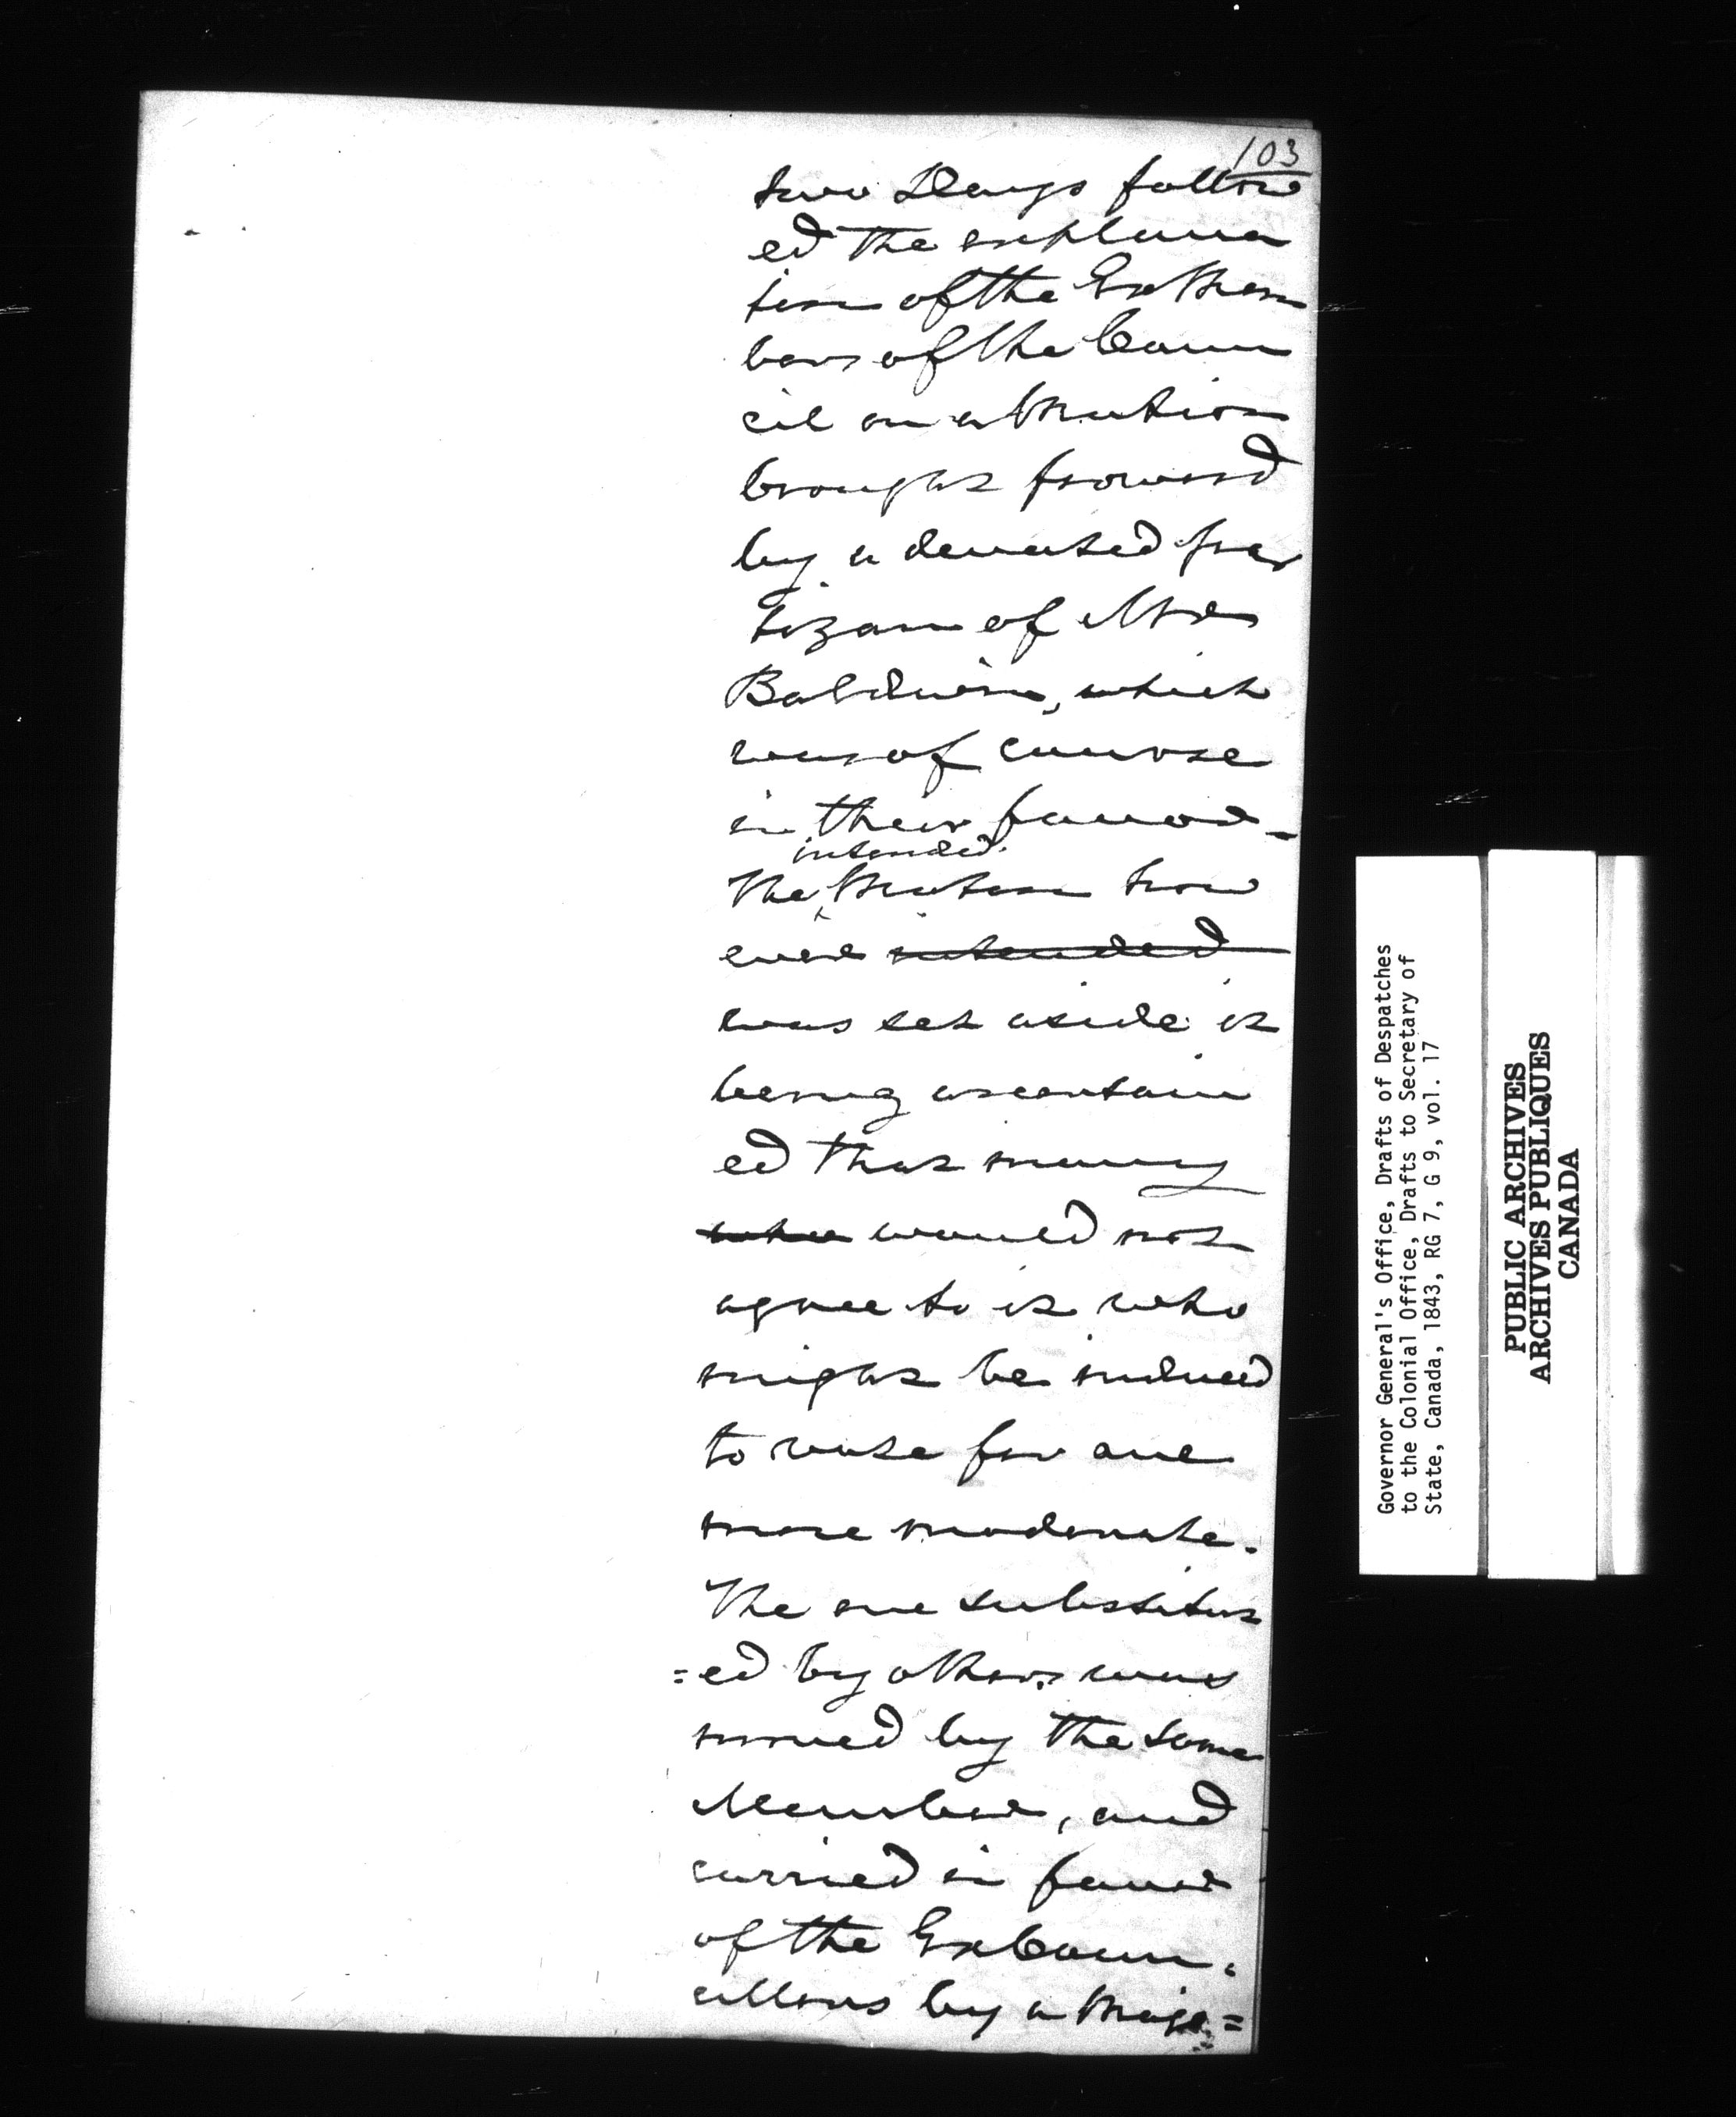 103
two Days follow
ed the explana
tion of the Ex Mem
bers of the Coun
cil on a Motion
brought forward
by a devoted par
tizan of Mr
Baldwin, which
was of course
in their favor -
intended
The Motion how
ever intended
was set aside it
being ascertain
ed that many
who would not
agree to it who
might be induced
to vote for one
more moderate.
The one substitut
=ed by others was
moved by the same
Member, and
carried in favor
of the Ex Coun.
cillors by a Majo=
Governor General's Office, Drafts of Despatches
to the Colonial Office, Drafts to Secretary of
State, Canada, 1843, RG 7, G 9, vol. 17
PUBLIC ARCHIVES
ARCHIVES PUBLIQUES
CANADA